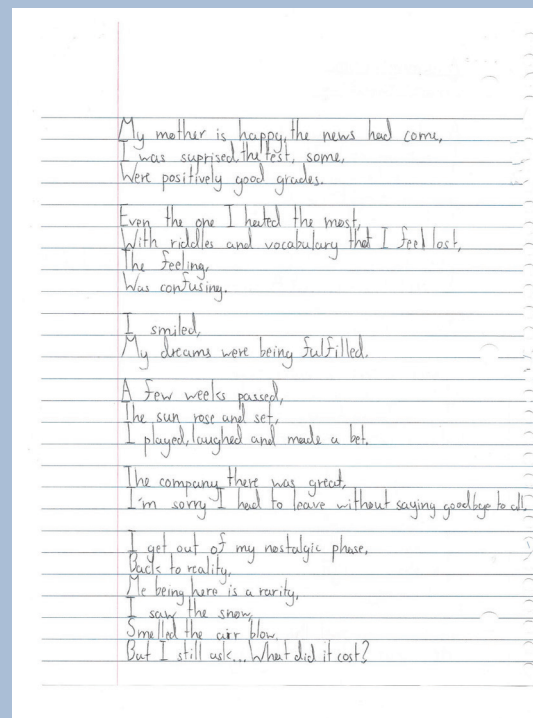 My mother is happy, the news had come,
I was suprised, the test, some,
Were positively good grades.
Even the one I hated the most,
With riddles and vocabulary that I feel lost,
The feeling,
Was confusing.
I smiled,
My dreams were being fulfilled.
A few weeks passed,
The sun rose and set,
I played, laughed and made a bet.
The company there was great,
I'm sorry I had to leave without saying goodbye to all.
I get out of my nostalgic phase,
Back to reality,
Me being here is a rarity,
I saw the snow,
Smelled the air blow.
But I still ask... What did it cost?